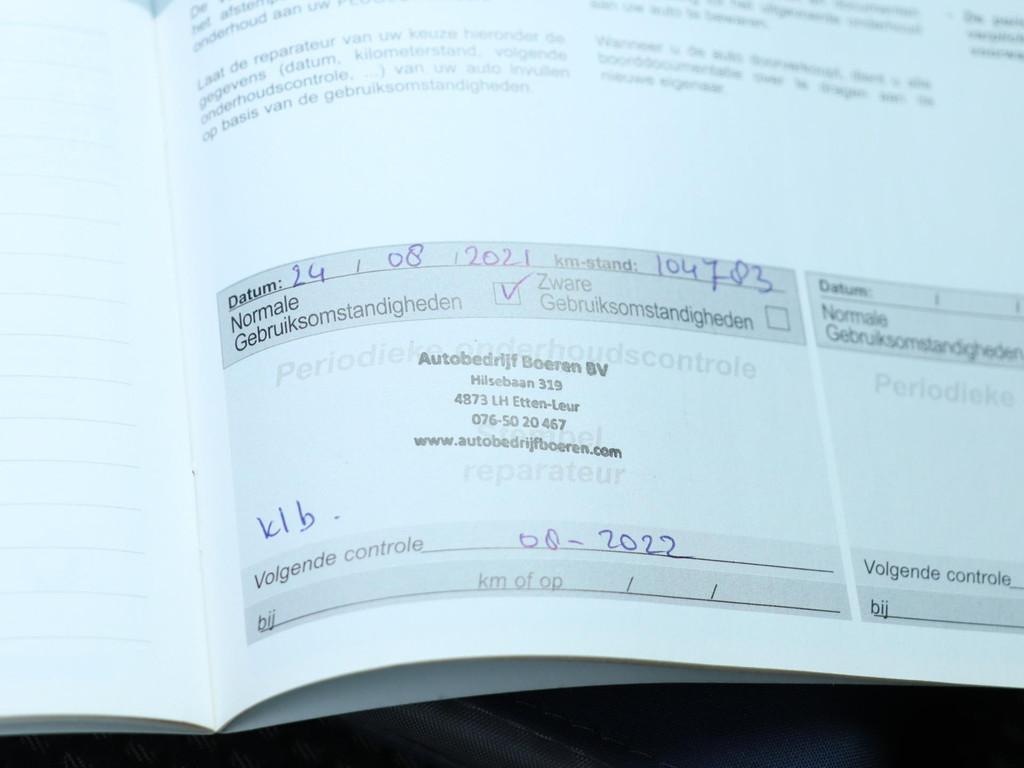 het afstem
onderhoud aan uw
Laat de reparateur van uw keuze hieronder de
gegevens (datum, kilometerstand, volgende
onderhoudscontrole, ...) van uw auto invullen
op basis van de gebruiksomstandigheden.
aan uw auto te bewaren.
Wanneer u de auto doorverkoopt, dient u alle
boorddocumentatie over te dragen aan de
nieuwe eigenaar.
Datum: 24 / 08 / 2021 km-stand: 104783
Normale
Gebruiksomstandigheden
Zware
Gebruiksomstandigheden
Periodieke onderhoudscontrole
Autobedrijf Boeren BV
Hilsebaan 319
4873 LH Etten-Leur
076-50 20 467
www.autobedrijfboeren.com
Stempel
reparateur
klb.
Volgende controle 08-2022
km of op / /
bij
Datum: / /
Normale
Gebruiksomstandigheden
Periodieke
Volgende controle
bij